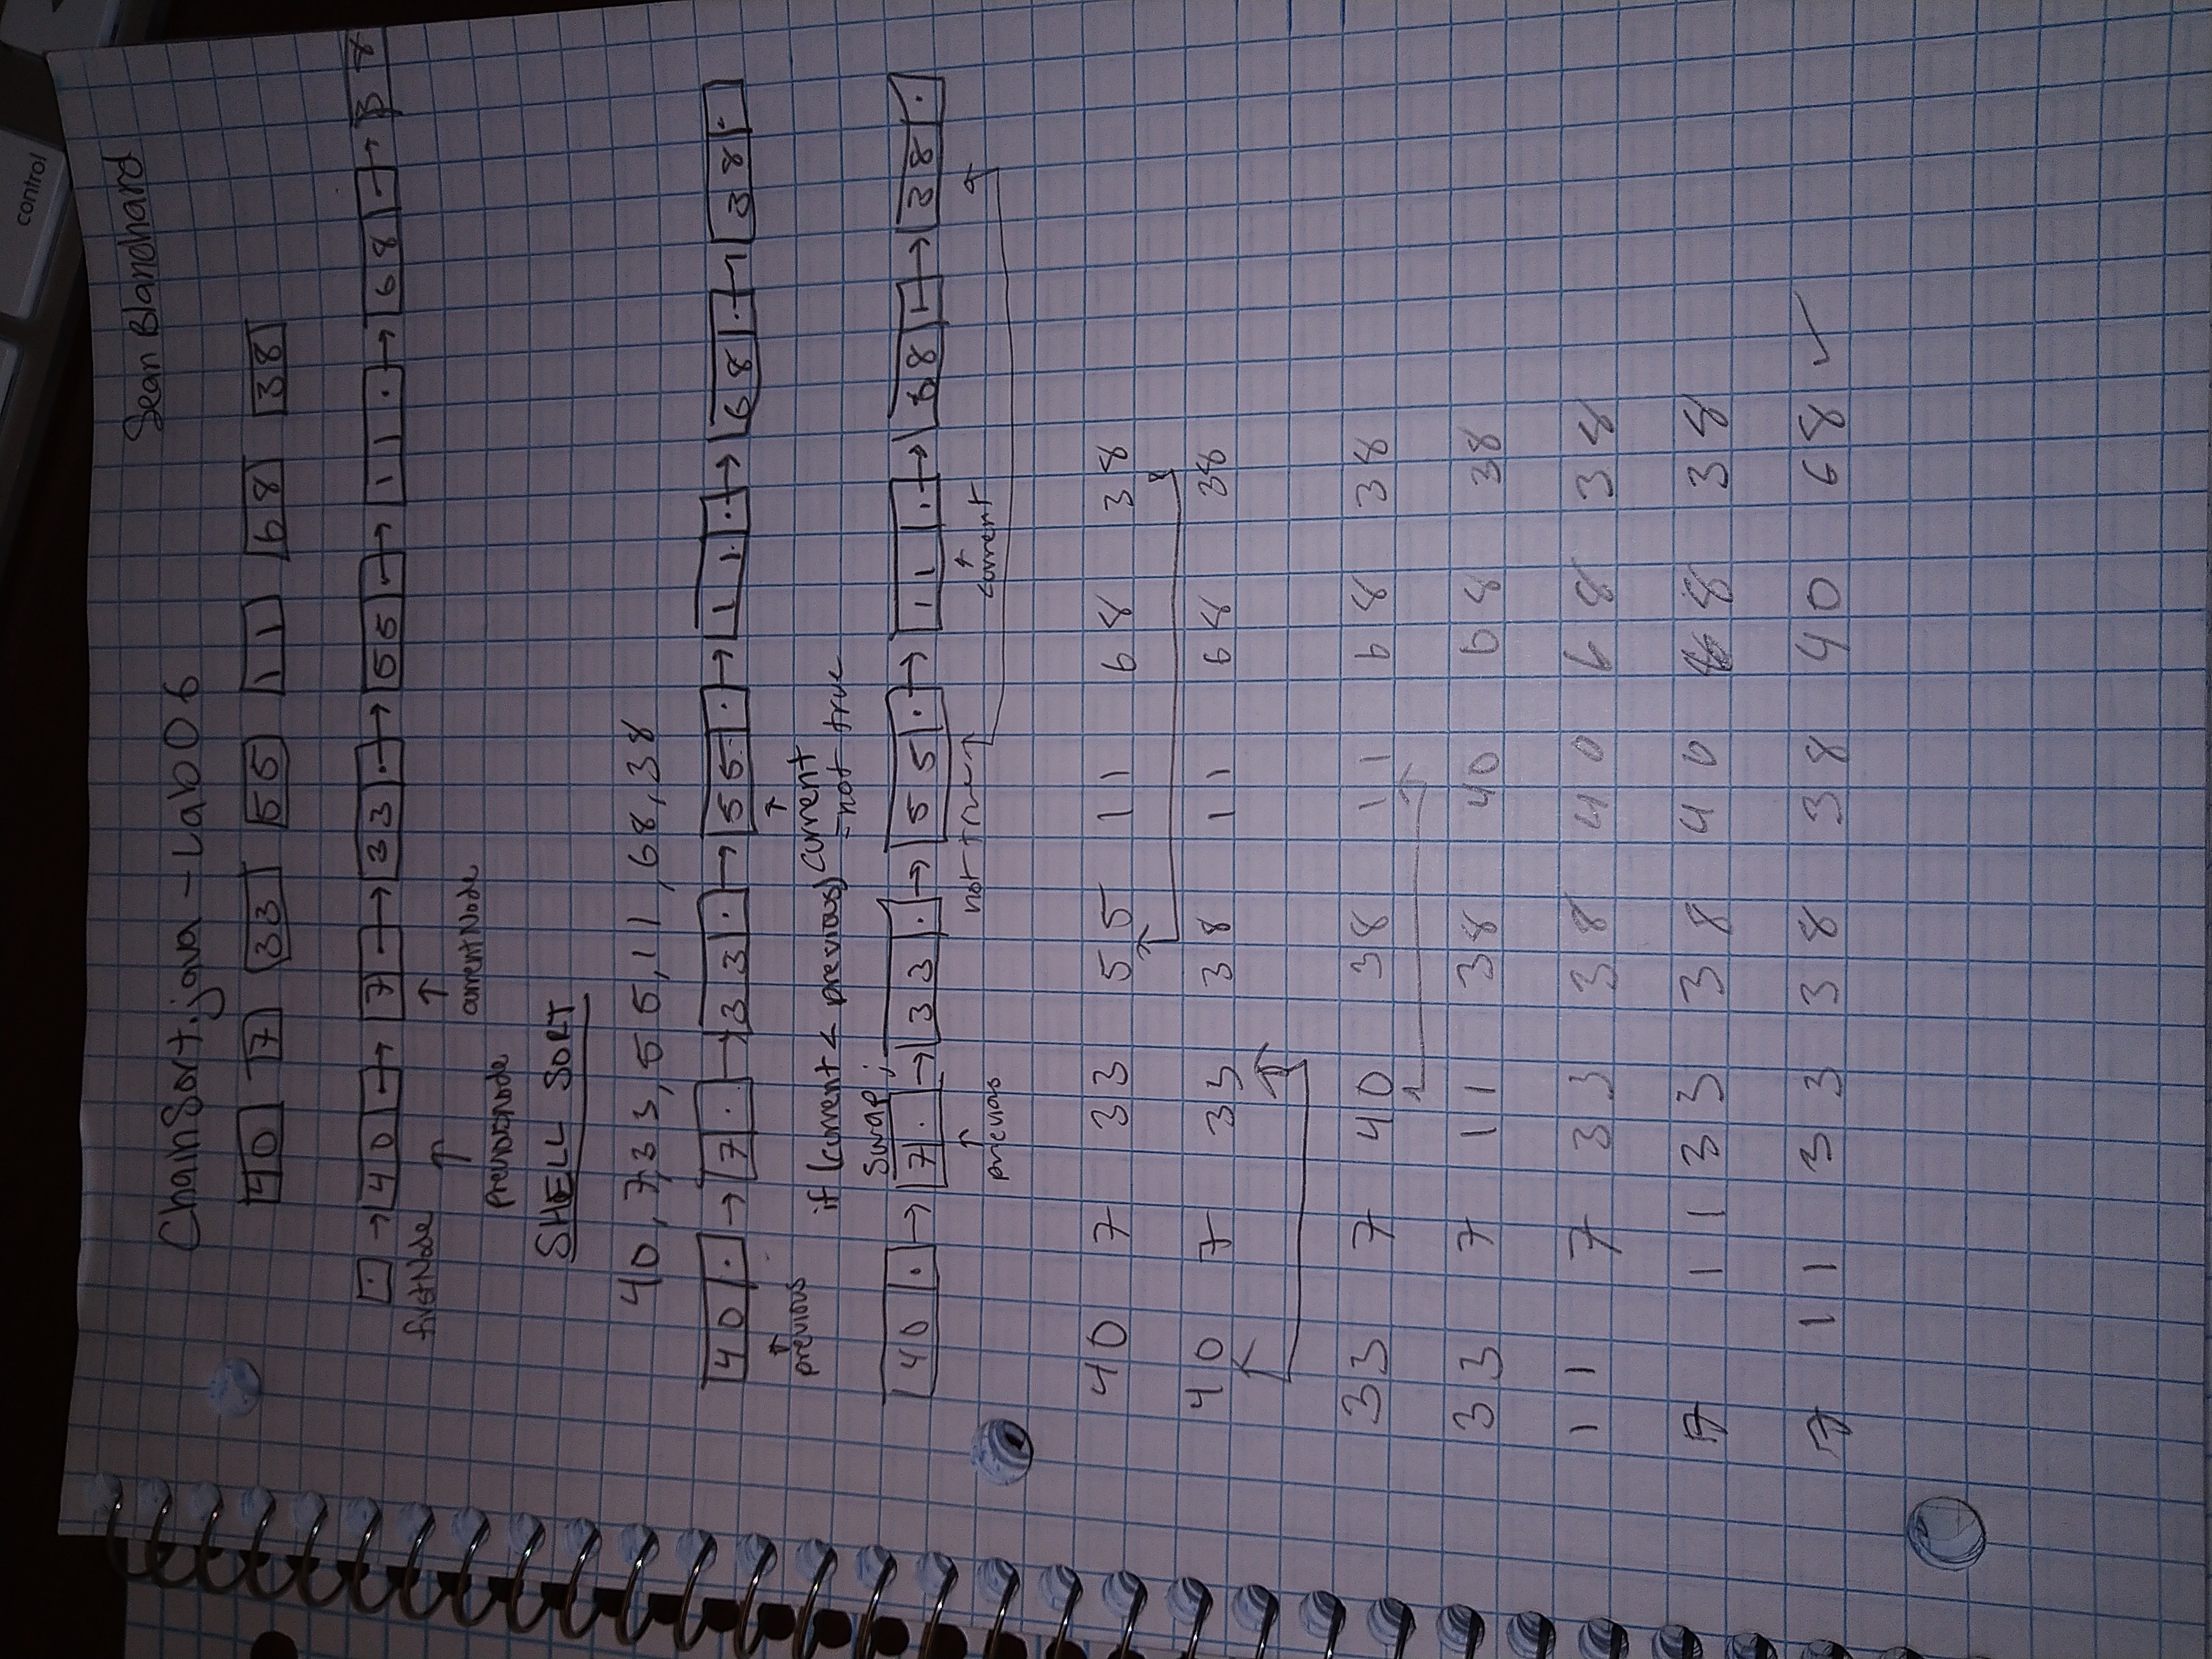 control
Sean Blanchard
ChainSort.java - Lab 06
40 7 33 55 11 68 38
. → 40 . → 7 . → 33 . → 55 . → 11 . → 68 . → 38
firstNode
currentNode
previousnode
SHELL SORT
40, 7, 33, 55, 11, 68, 38
40 . → 7 . → 33 . → 55 . → 11 . → 68 . → 38 .
previous
current
if (current < previous) - not true
swap;
40 . → 7 . → 33 . → 55 . → 11 . → 68 . → 38 .
previous not true current
40 7 33 55 11 68 38
40 7 33 38 11 68 38
33 7 40 38 11 68 38
33 7 11 38 40 68 38
11 7 33 38 40 68 38
7 11 33 38 40 68 38
7 11 33 38 38 40 68 ✓